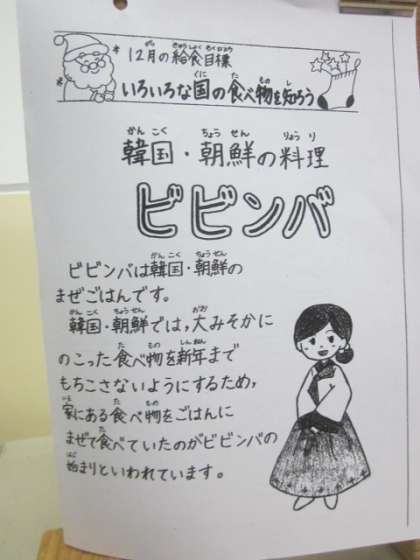 12月の給食目標
いろいろな国の食べ物を知ろう
韓国・朝鮮の料理
ビビンバ
ビビンバは韓国・朝鮮の
まぜごはんです。
韓国・朝鮮では，大みそかに
のこった食べ物を新年まで
もちこさないようにするため，
家にある食べ物をごはんに
まぜて食べていたのがビビンバの
始まりといわれています。